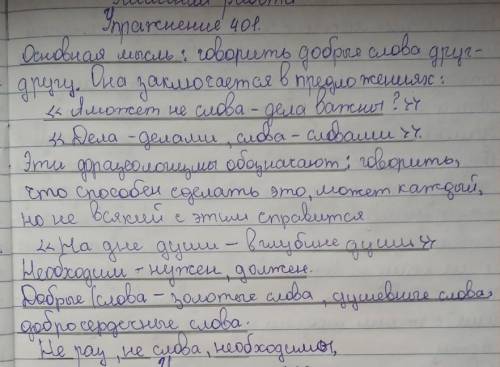 работа
Упражнение 401.
Основная мысль: говорить добрые слова друг-
другу. Она заключается в предложениях:
« А может не слова - дела важны? »
« Дела - делами, слова - словами ».
Эти фразеологизмы обозначают: говорить,
что способен сделать это, может каждый,
но не всякий с этим справится
« На дне души - в глубине души »
Необходим - нужен, должен.
Добрые слова - золотые слова, душевные слова,
добросердечные слова.
Не раз, не слова, необходимы,